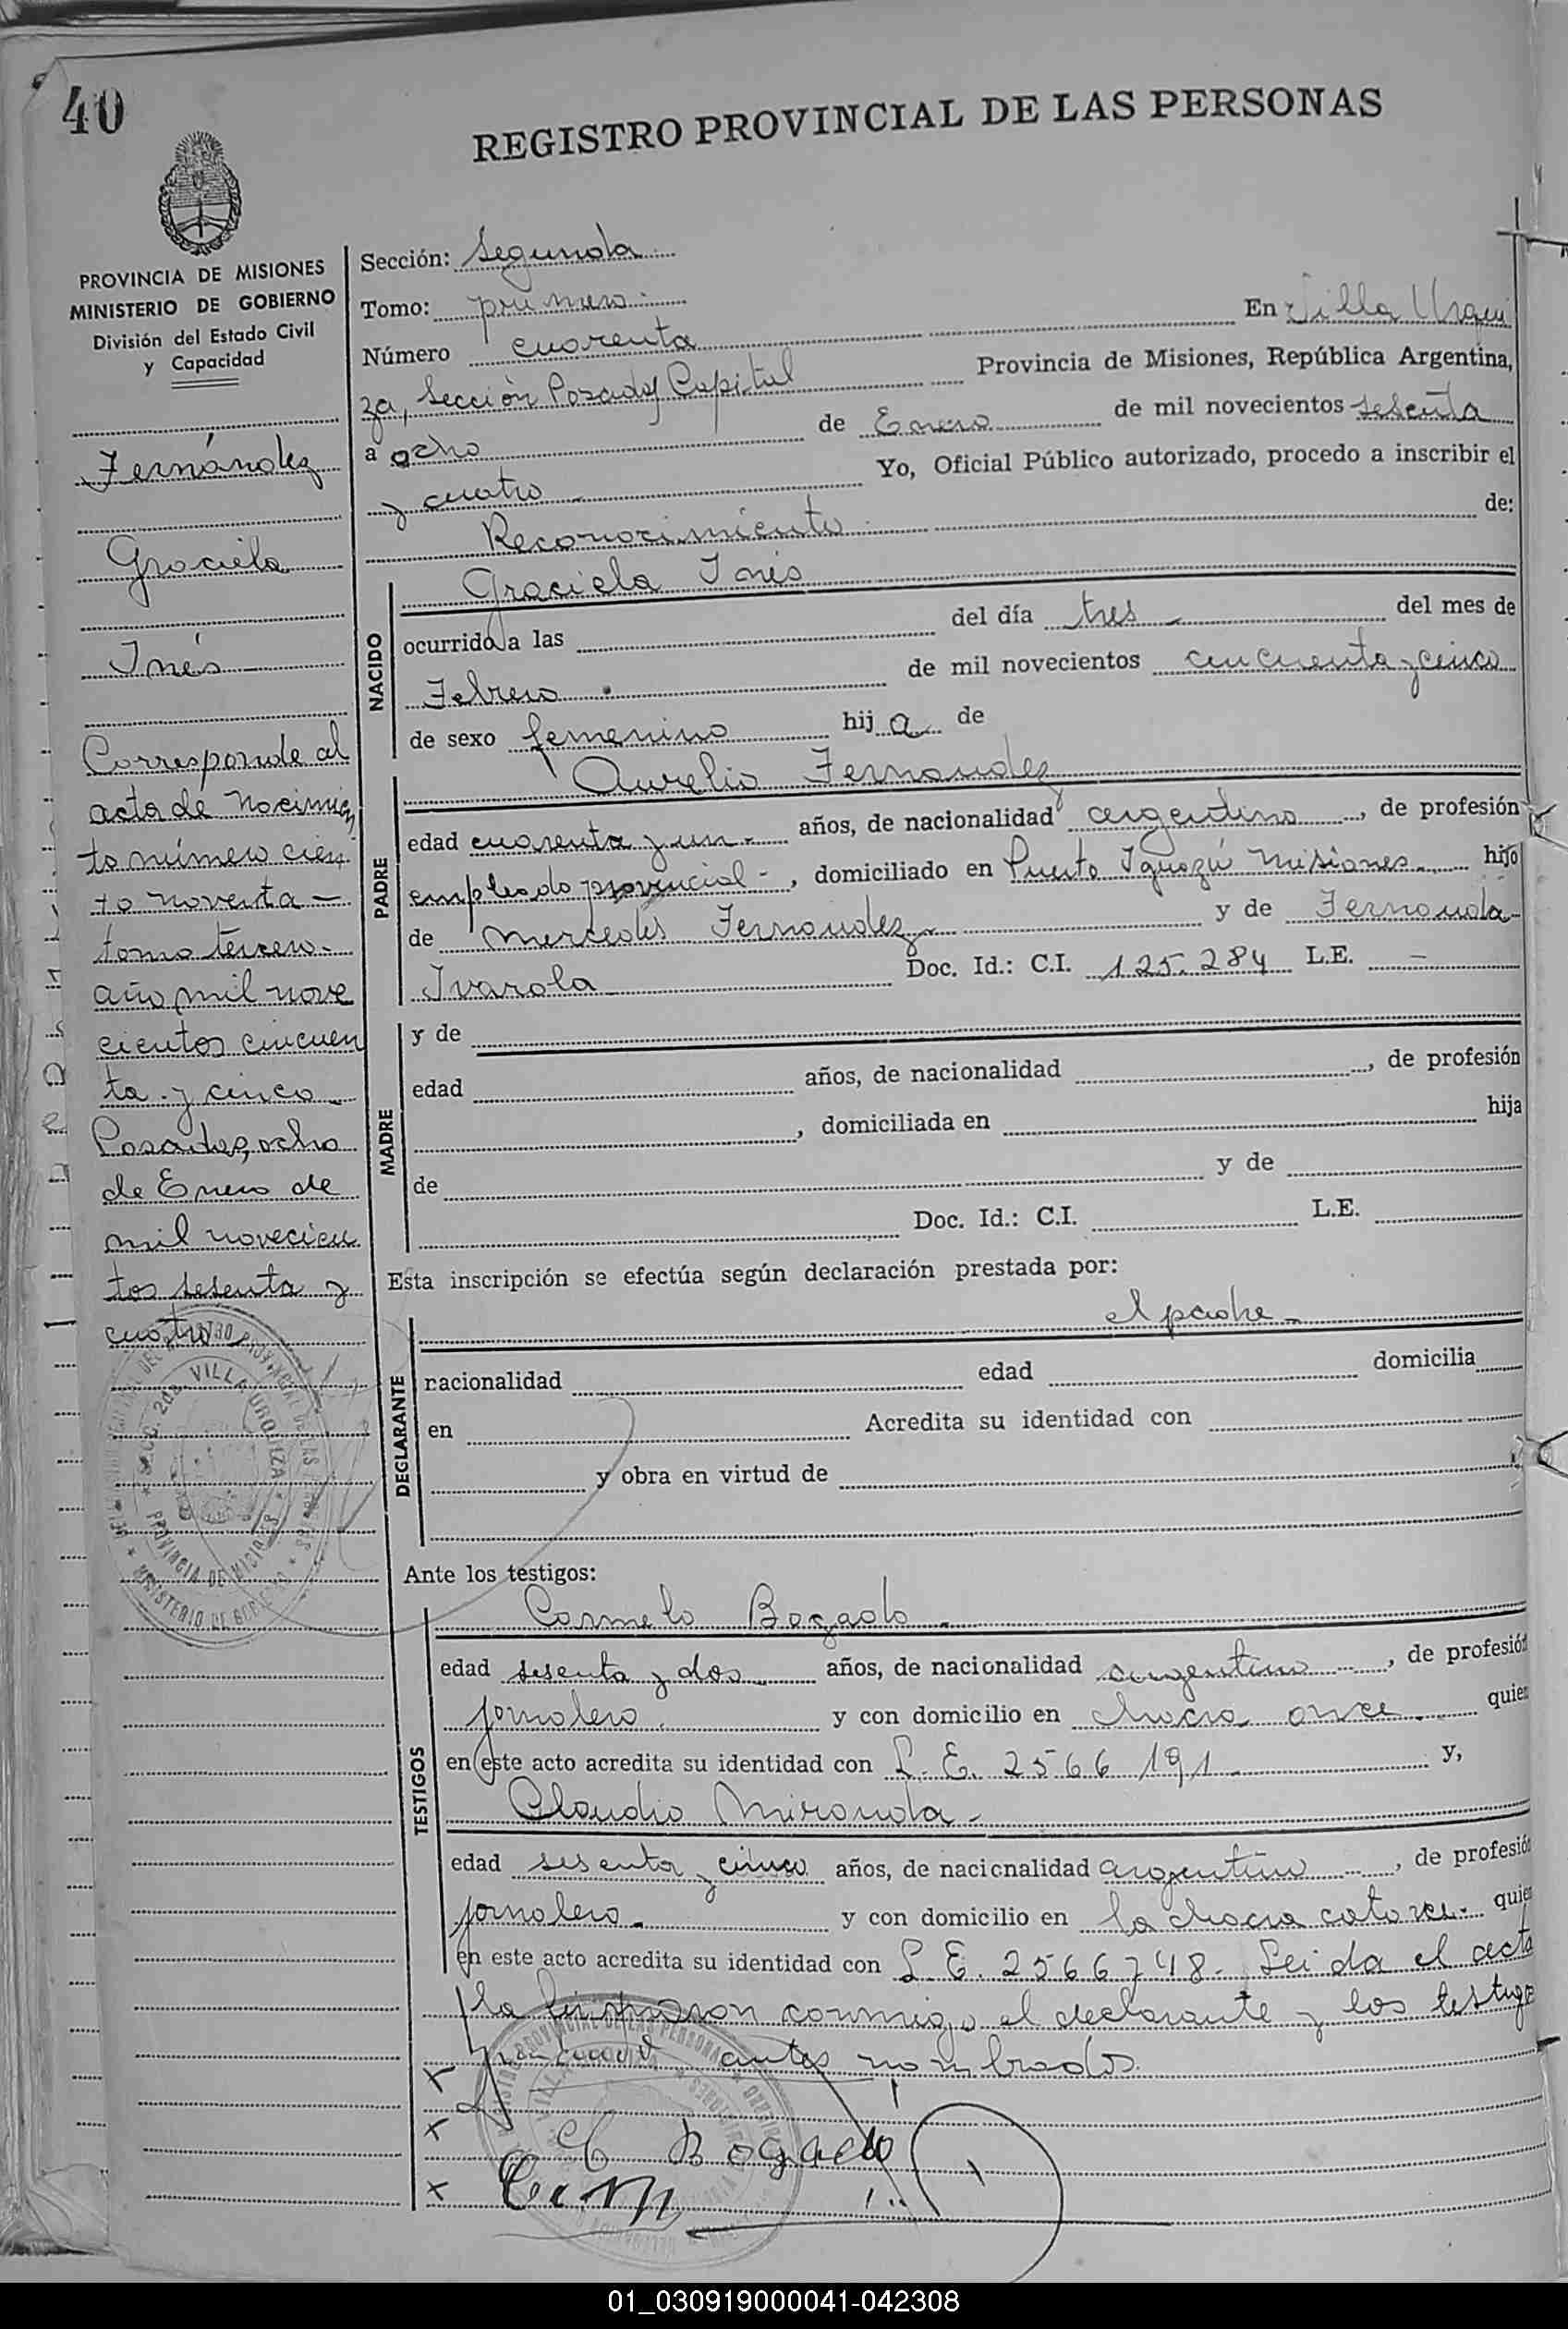 40
REGISTRO PROVINCIAL DE LAS PERSONAS
PROVINCIA DE MISIONES
MINISTERIO DE GOBIERNO
División del Estado Civil
y Capacidad
Fernández
Graciela
Inés
Corresponde al
acta de nacimien
to número cien
to noventa —
tomo tercero -
año mil nove
cientos cincuen
ta y cinco -
Posadas, ocho
de Enero de
mil novecien
tos sesenta y
cuatro
Sección: Segunda
Tomo: primero
Número cuarenta En Villa Urqui
za, Sección Posadas Capital Provincia de Misiones, República Argentina,
a ocho de Enero de mil novecientos sesenta
y cuatro - Yo, Oficial Público autorizado, procedo a inscribir el
Reconocimiento de:
NACIDO
Graciela Inés
ocurrido a las del día tres - del mes de
Febrero de mil novecientos cincuenta y cinco
de sexo femenino hija de
PADRE
Aurelio Fernandez
edad cuarenta y un - años, de nacionalidad argentino, de profesión
empleado provincial -, domiciliado en Puerto Iguazú Misiones hijo
de Mercedes Fernandez y de Fernanda
Ivarola Doc. Id.: C.I. 125.284 L.E. -
MADRE
y de
edad años, de nacionalidad , de profesión
, domiciliada en hija
de y de
Doc. Id.: C.I. L.E.
Esta inscripción se efectúa según declaración prestada por:
DECLARANTE
el padre -
nacionalidad edad domicilia
en Acredita su identidad con
y obra en virtud de
Ante los testigos:
TESTIGOS
Carmelo Bogado -
edad sesenta y dos años, de nacionalidad argentino, de profesión
jornalero. y con domicilio en chacra once. quien
en este acto acredita su identidad con L.E. 2566191 - y,
Claudio Miranda -
edad sesenta y cinco años, de nacionalidad argentino, de profesión
jornalero - y con domicilio en la chacra catorce. quien
en este acto acredita su identidad con L.E. 2566748 - Leida el acta
la firmaron conmigo el declarante y los testigos
antes nombrados.
C Bogado
SECC. 2da. VILLA URQUIZA
PROVINCIA DE MISIONES
MINISTERIO DE GOBIERNO
01_030919000041-042308